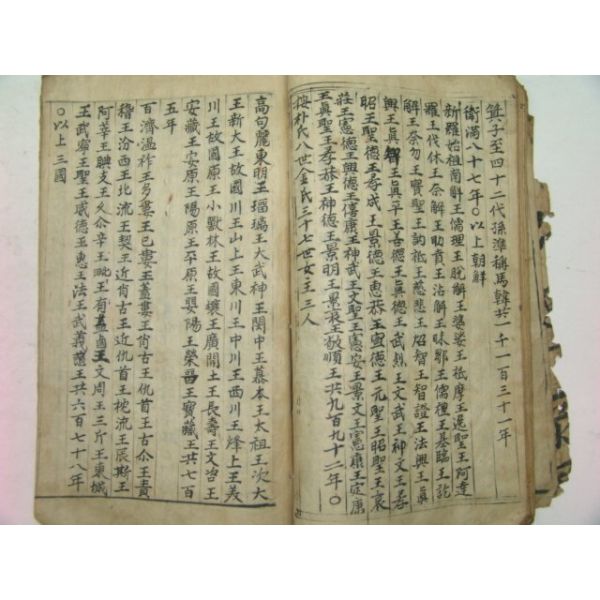 箕子至四十二代孫準稱馬韓共一千一百三十一年
衛滿八十七年○以上朝鮮
新羅始祖南解王儒理王脫解王婆娑王祗摩王逸聖王阿達
羅王伐休王奈解王助賁王沾解王味鄒王儒禮王基臨王訖
解王奈勿王實聖王訥祗王慈悲王炤智王智證王法興王眞
興王眞智王眞平王善德王眞德王武烈王文武王神文王孝
昭王聖德王孝成王景德王惠恭王宣德王元聖王昭聖王哀
莊王憲德王興德王僖康王神武王文聖王憲安王景文王憲康王定康
王眞聖王孝恭王神德王景明王景哀王敬順王共九百九十二年○
朴氏八世金氏三十七世女王三人
高句麗東明王瑠璃王大武神王閔中王慕本王太祖王次大
王新大王故國川王山上王東川王中川王西川王烽上王美
川王故國原王小獸林王故國壤王廣開土王長壽王文咨王
安藏王安原王陽原王平原王嬰陽王榮留王寶藏王共七百
五年
百濟溫祚王多婁王己婁王蓋婁王肖古王仇首王古尒王責
稽王汾西王比流王契王近肖古王近仇首王枕流王辰斯王
阿莘王腆支王久尒辛王毗王有蓋鹵王文周王三斤王東城
王武寧王聖王威德王惠王法王武王義慈王共六百七十八年
○以上三國